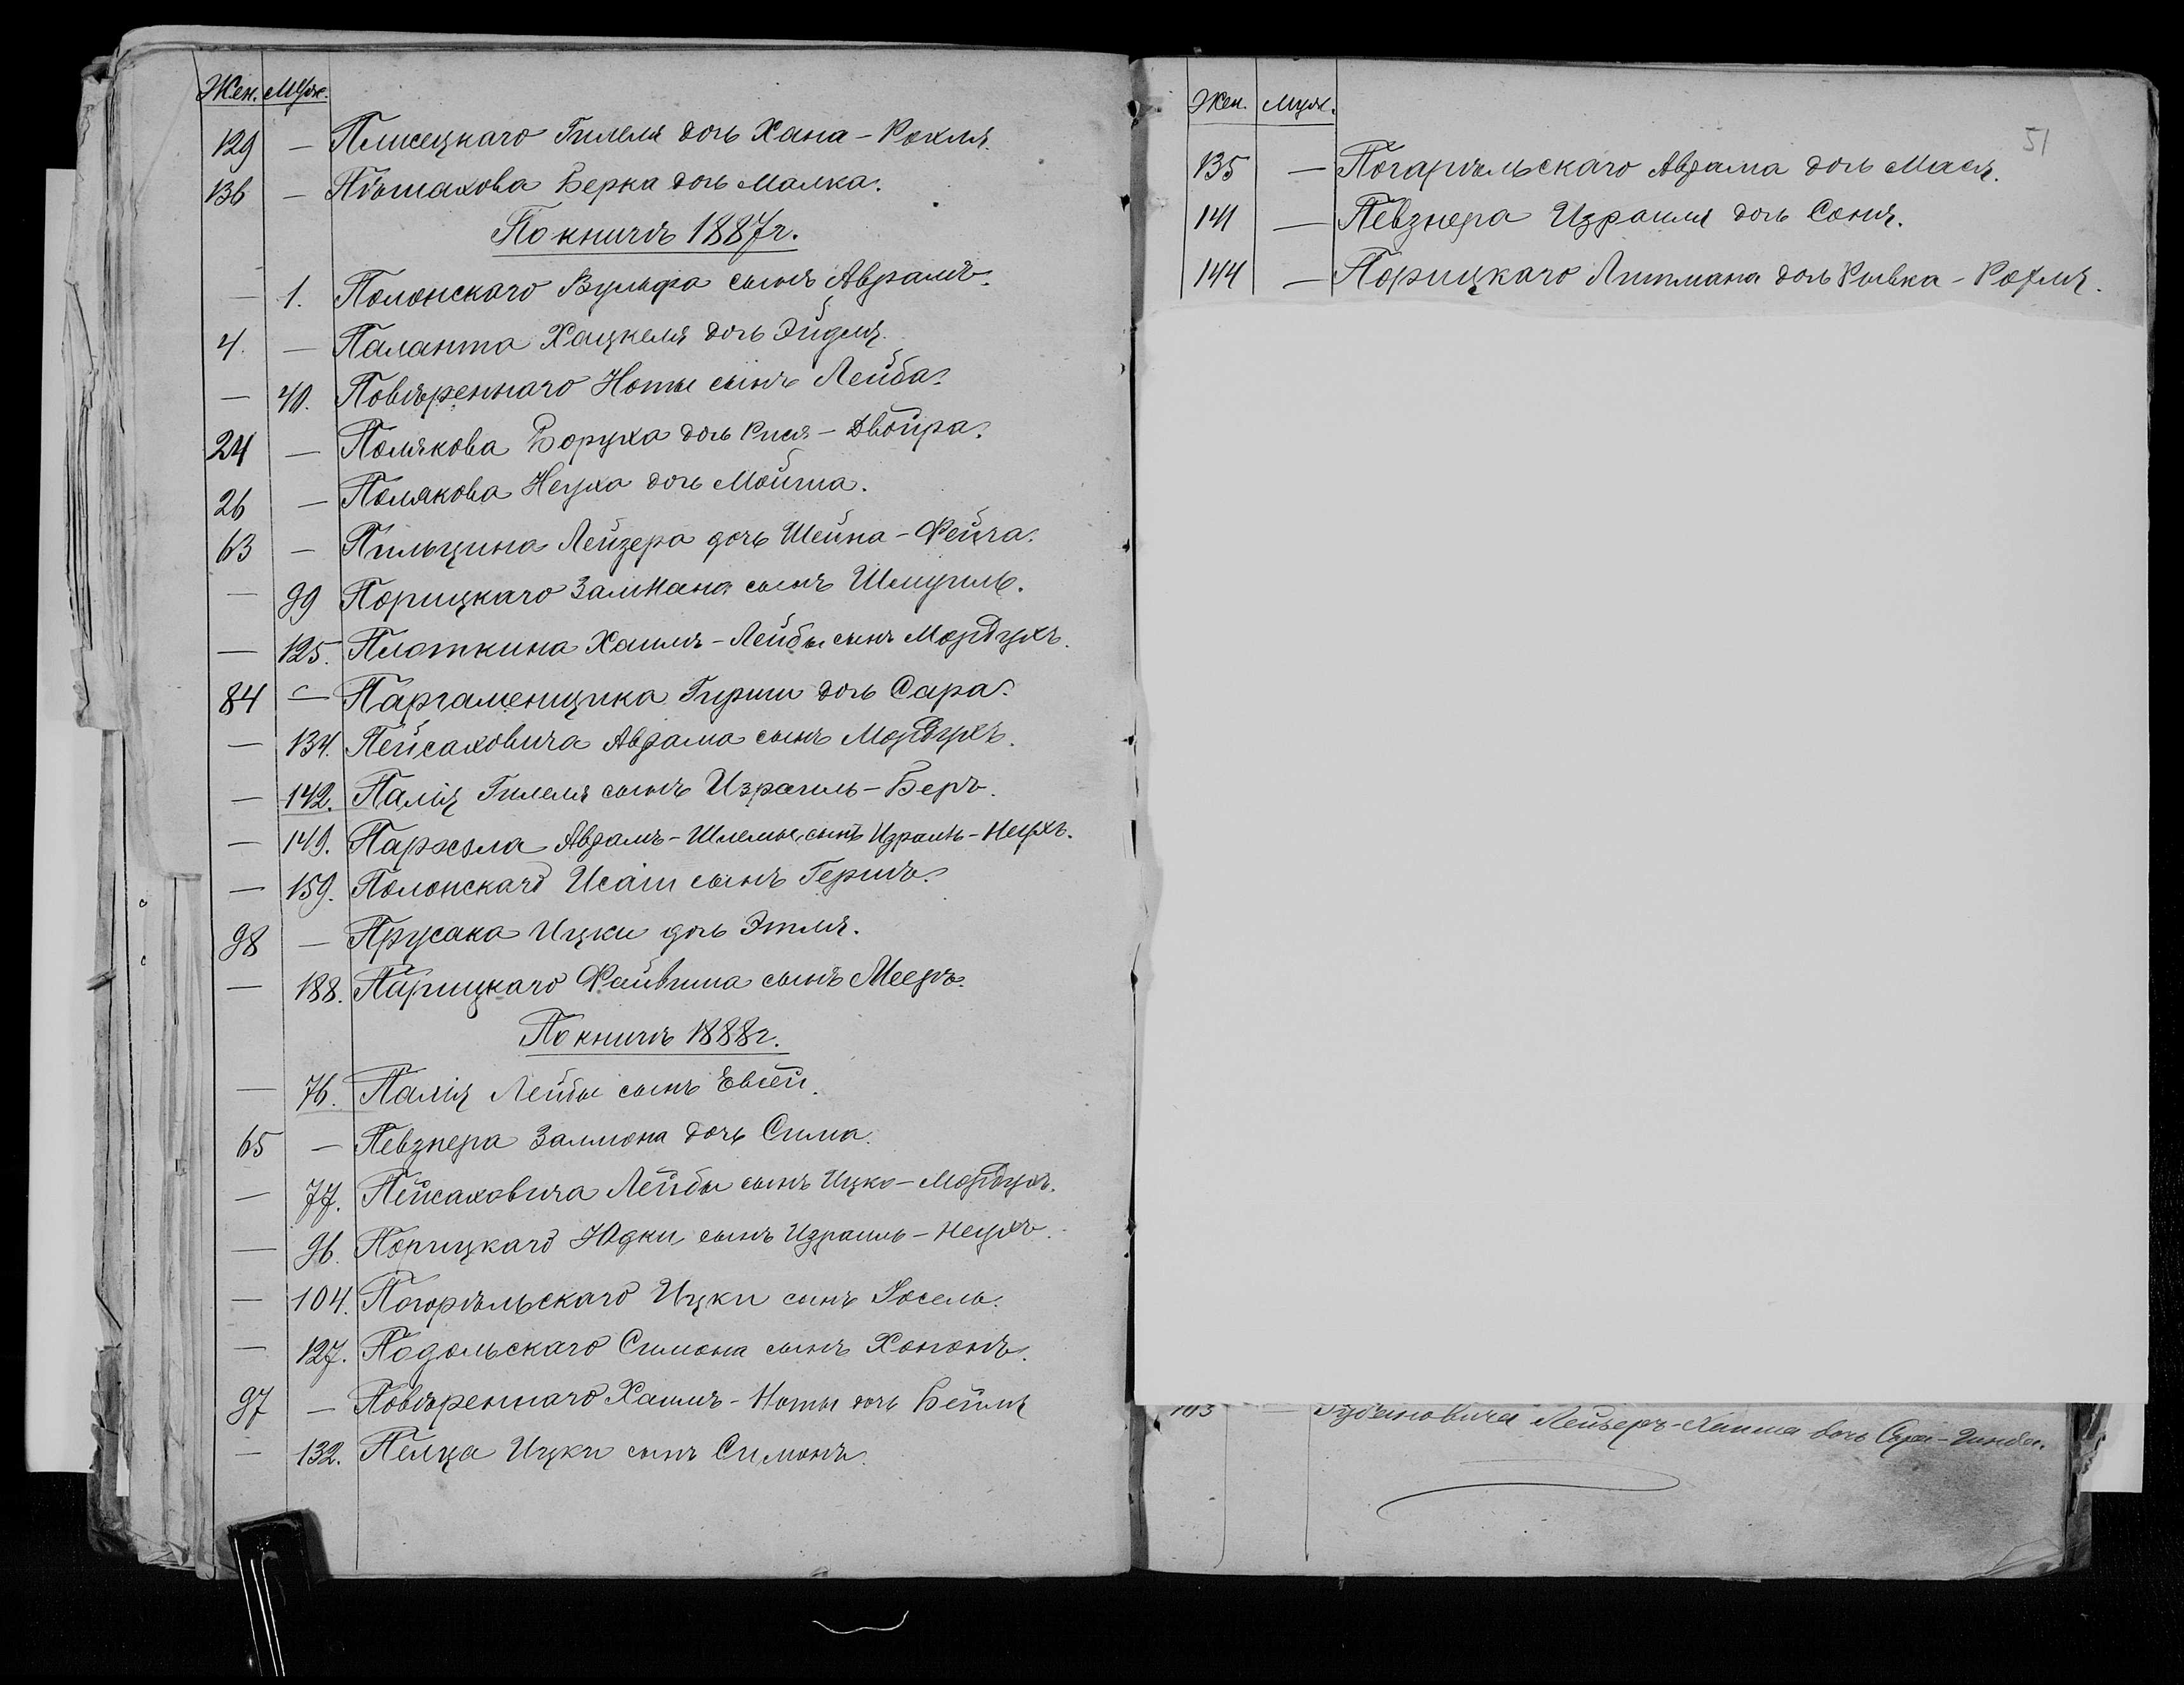 Жен. Муж.
129 — Плисецкаго Гилеля дочь Хана-Рохля.
136 — Пѣшахова Берка дочь Малка.
По книгѣ 1887 г.
— 1. Полонскаго Вульфа сынъ Аврамъ.
4. — Паланта Хацкеля дочь Эйдля.
— 40. Повѣреннаго Ноты сынъ Лейба.
24 — Полякова Боруха дочь Рися-Двойра.
26 — Полякова Неуха дочь
63 — Пильщина Лейзера дочь Шейна-Фейга.
— 99 Порицкаго Залмана сынъ Шмуиль.
— 125. Плоткина Хаимъ-Лейбы сынъ Мордухъ.
84 — Паргаменщика Гирши дочь Сара.
— 134. Пейсаховича Аврама сынъ Мордухъ.
— 142. Палій Гилеля сынъ Израиль-Беръ.
— 149. Аврамъ-Шлемы сынъ Израиль-Неухъ.
— 159. Полонскаго Исаіи сынъ Гершъ.
98 — Прусака Ицки дочь Этля.
— 188. Парицкаго Файвиша сынъ Мееръ.
По книгѣ 1888 г.
— 76. Палій Лейбы сынъ Евсей.
65 — Певзнера Залмона дочь Сима.
— 77. Пейсаховича Лейбы сынъ Ицко-Мордухъ.
— 96. Порицкаго Юдки сынъ Израиль-Неухъ.
— 104. Погорѣльскаго Ицки сынъ Іосель.
— 127. Подольскаго Симона сынъ Хононъ.
97 — Повѣреннаго Хаимъ-Ноты дочь Бейля
— 132. Пелца Ицки сынъ Симонъ.
51
Жен. Муж.
135 — Погарѣльскаго Аврама дочь Мася.
141 — Певзнера Израиля дочь Соня.
144 — Порицкаго Литмана дочь Рывка-Рохля.
103 — дочь Сара-